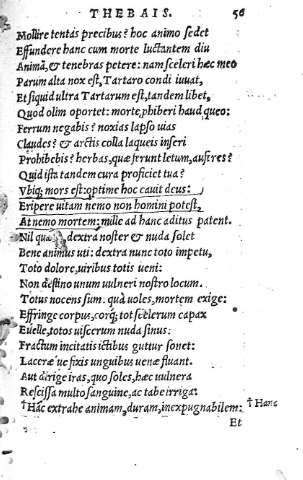 THEBAIS. 56
Mollire tentas precibus? hoc animo sedet
Effundere hanc cum morte luctantem diu
Animã, & tenebras petere: nam sceleri hæc meo
Parum alta nox est, Tartaro condi iuuat,
Et siquid ultra Tartarum est, tandem libet,
Quod olim oportet: morte phiberi haud queo:
Ferrum negabis? noxias lapso uias
Claudes? & arctis colla laqueis inseri
Prohibebis? herbas, quæ ferunt letum, auferes?
Quid ista tandem cura proficiet tua?
Vbiq; mors est: optime hoc cauit deus:
Eripere uitam nemo non homini potest,
At nemo mortem: mille ad hanc aditus patent.
Nil dextra noster & nuda solet
Bene animus uti: dextra nunc toto impetu,
Toto dolore, uiribus totis ueni:
Non destino unum uulneri nostro locum.
Totus nocens sum. quà uoles, mortem exige:
Effringe corpus, corq; tot scelerum capax
Euelle, totos uiscerum nuda sinus:
Fractum incitatis ictibus guttur sonet:
Laceræ ue fixis unguibus uenæ fluant.
Aut dirige iras, quo soles, hæc uulnera
Rescissa multo sanguine, ac tabe irriga:
†Hàc extrahe animam, duram, inexpugnabilem: †Hanc
Et